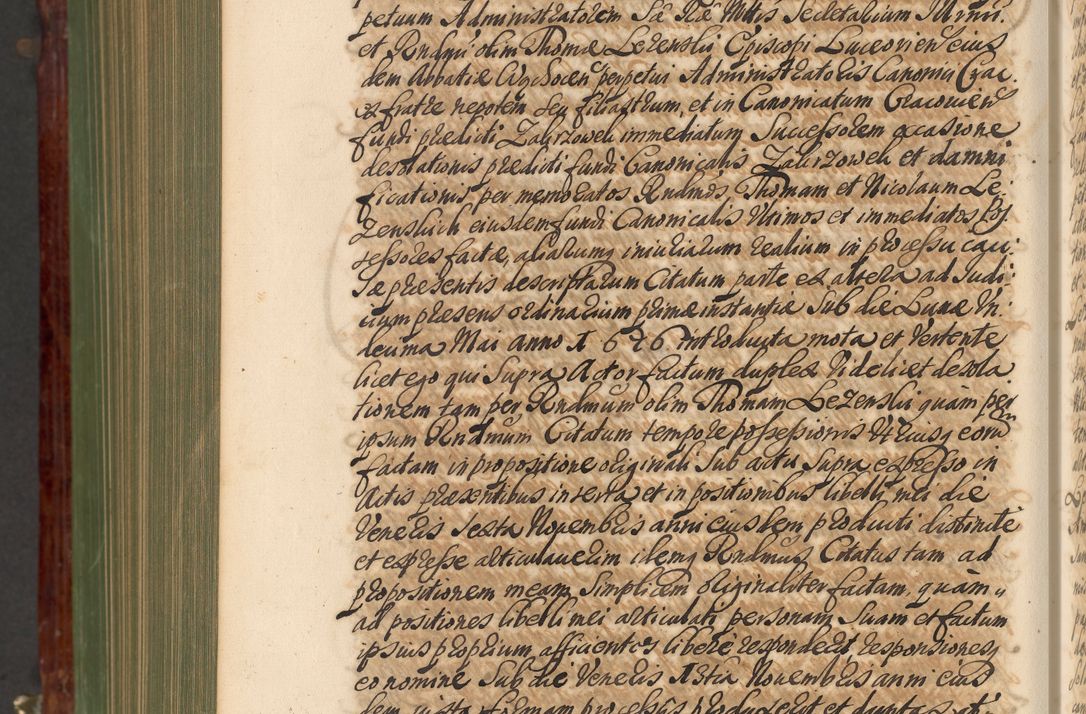 petuum Administratorem Sae Rae Mttis Secretarium Illmi
et Rndmi olim Thomae Lezenski Episcopi Luceorien eius
dem Abbatiae Wąchocen perpetui Administratoris Canonici Crac.
ex fratre nepotem seu filiastrum, et in Canonicatum Cracovien
fundi praedicti Zakrzowek immediatum Successorem occasione
desolationis praedicti fundi Canonicalis Zakrzowek et damni
ficationis per memoratos Rndmos Thomam et Nicolaum Le
zenskich eiusdem fundi Canonicalis Ultimos et immediatos Pos
sessores factae, aliarumq iniuriarum realium in processu cau
sae praesentis descriptarum Citatum parte ex altera ad Judi
cium praesens ordinarium primae instantiae Sub die Lunae Un
decima Mai anno 1626 introducta mota et Vertente
licet ego qui Supra Actor factum duplex Videlicet desola
tionem tam per Rndmum olim Thomam Lezenski quàm per
ipsum Rndmum Citatum tempore possessionis Utriusq eorum
factam in propositione originali Sub actu Supra expresso in
Actis praesentibus inserta et in positionibus libelli mei die
Veneris Sexta Novembris anni eiusdem producti distincte
et expresse articulaverim idemq Rndmus Citatus tam ad
propositionem meam Simplicem originaliter factam, quàm
ad positiones libelli mei articulati personam Suam et factum
ipsius proprium afficientes libere respondent responsiones
eo nomine Sub die Veneris Novembris anni eius
dem iuxta formam processus produxerit et